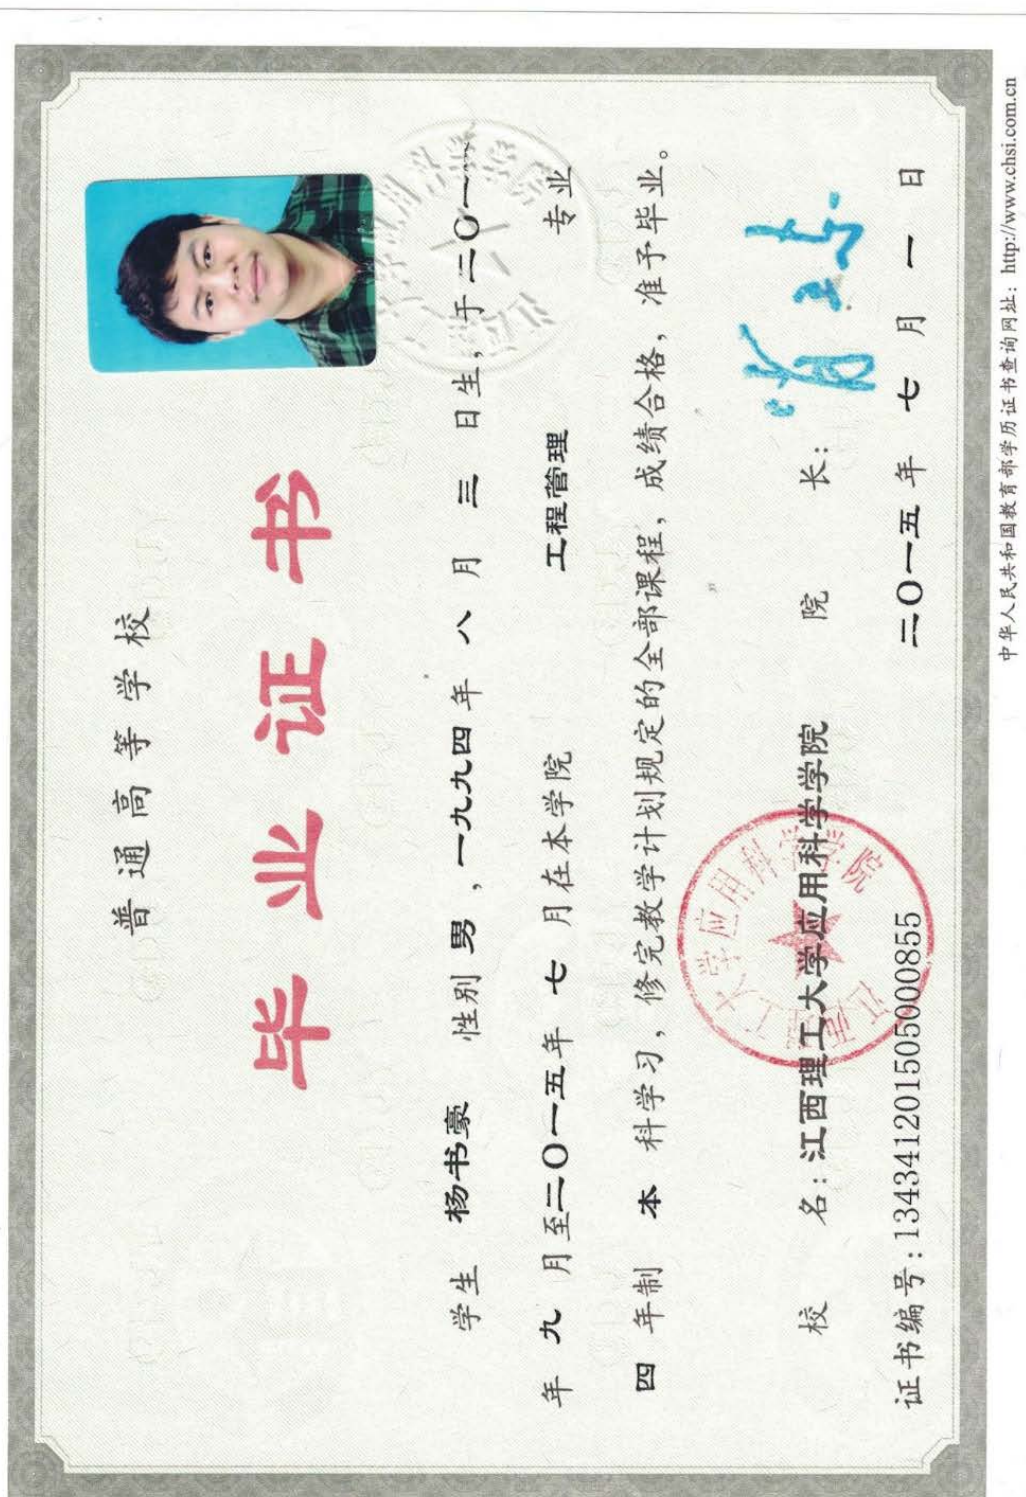 普通高等学校
毕业证书
学生 杨书豪 性别 男，一九九四年 八 月 三 日生，于二〇一一
年 九 月至二〇一五年 七 月在本学院 工程管理 专业
四 年制 本 科学习，修完教学计划规定的全部课程，成绩合格，准予毕业。
校 名：江西理工大学应用科学学院 院 长：
江西理工大学应用科学学院
证书编号：134341201505000855 二〇一五年 七 月 一 日
中华人民共和国教育部学历证书查询网址：http://www.chsi.com.cn